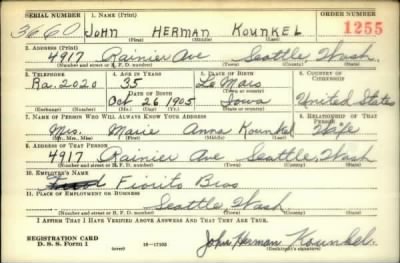 SERIAL NUMBER 1. NAME (Print) ORDER NUMBER
3660 JOHN HERMAN KOUNKEL 1255
(First) (Middle) (Last)
2. ADDRESS (Print)
4917 Rainier Ave Seattle Wash.
(Number and street or R. F. D. number) (Town) (County) (State)
3. TELEPHONE 4. AGE IN YEARS 5. PLACE OF BIRTH 6. COUNTRY OF CITIZENSHIP
Ra. 2020 35 Le Mars
DATE OF BIRTH (Town or county)
Oct 26 1905 Iowa United States
(Exchange) (Number) (Mo.) (Day) (Yr.) (State or country)
7. NAME OF PERSON WHO WILL ALWAYS KNOW YOUR ADDRESS 8. RELATIONSHIP OF THAT PERSON
Mrs. Marie Anna Kounkel Wife
(Mr., Mrs., Miss) (First) (Middle) (Last)
9. ADDRESS OF THAT PERSON
4917 Rainier Ave Seattle, Wash
(Number and street or R. F. D. number) (Town) (County) (State)
10. EMPLOYER'S NAME
Fiorito Bros
11. PLACE OF EMPLOYMENT OR BUSINESS
Seattle Wash
(Number and street or R. F. D. number) (Town) (County) (State)
I AFFIRM THAT I HAVE VERIFIED ABOVE ANSWERS AND THAT THEY ARE TRUE.
REGISTRATION CARD
D. S. S. Form 1 (over) 16—17105 John Herman Kounkel
(Registrant's signature)